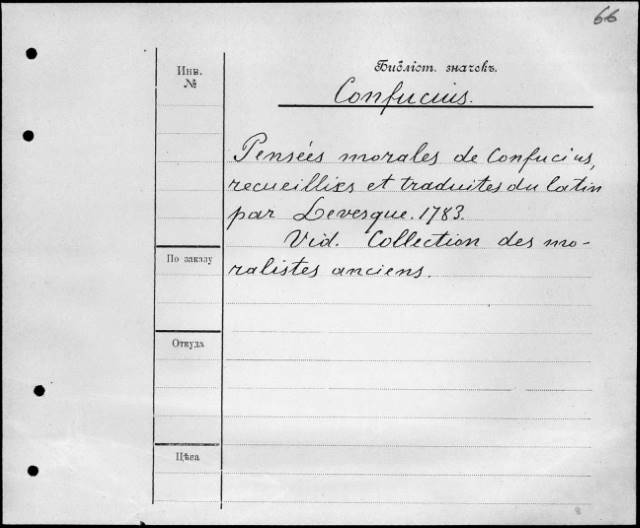 66
Инв.
№
Библіот. значокъ.
Confucius.
Pensées morales de Confucius,
recueillies et traduites du latin
par Levesque. 1783.
Vid. Collection des mo-
ralistes anciens.
По заказу
Откуда
Цѣна